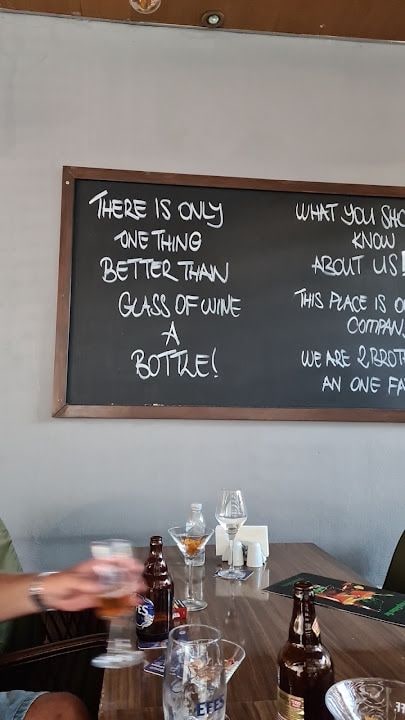 THERE IS ONLY
ONE THING
BETTER THAN
GLASS OF WINE
A
BOTTLE!
WHAT YOU SHO
KNOW
ABOUT US!
THIS PLACE IS
COMPAN
WE ARE 2 BROT
AN ONE FA
EFES